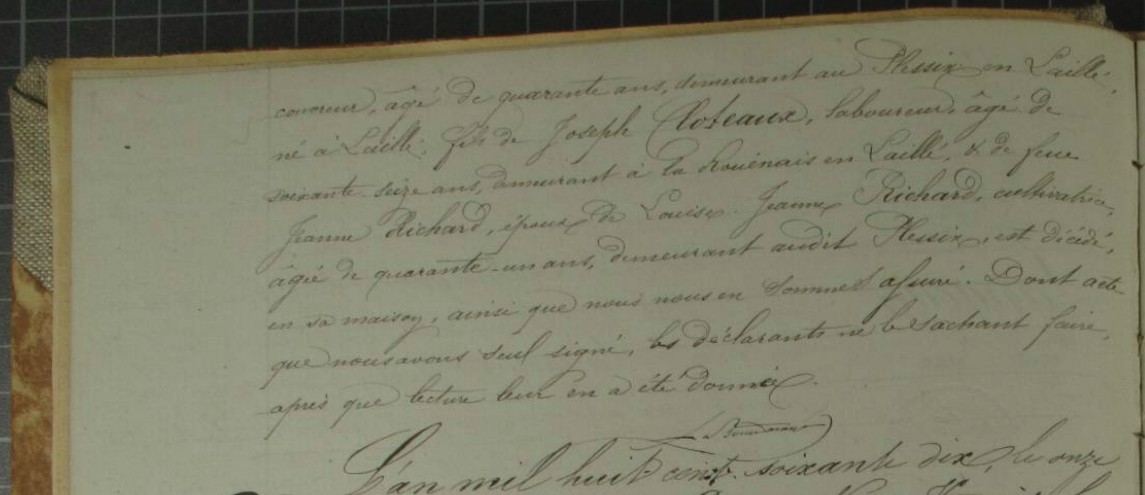 couvreur, âgé de quarante ans, demeurant au Plessix en Laillé,
né à Laillé, fils de Joseph Cloteaux, laboureur, âgé de
soixante-seize ans, demeurant à la Rouënais en Laillé, & de feue
Jeanne Richard, époux de Louise-Jeanne Richard, cultivatrice,
âgée de quarante-un ans, demeurant audit Plessix, est décédé,
en sa maison, ainsi que nous nous en sommes assuré. Dont acte
que nous avons seul signé, les déclarants ne le sachant faire,
après que lecture leur en a été donnée.
L'an mil huit cent soixante dix, le onze